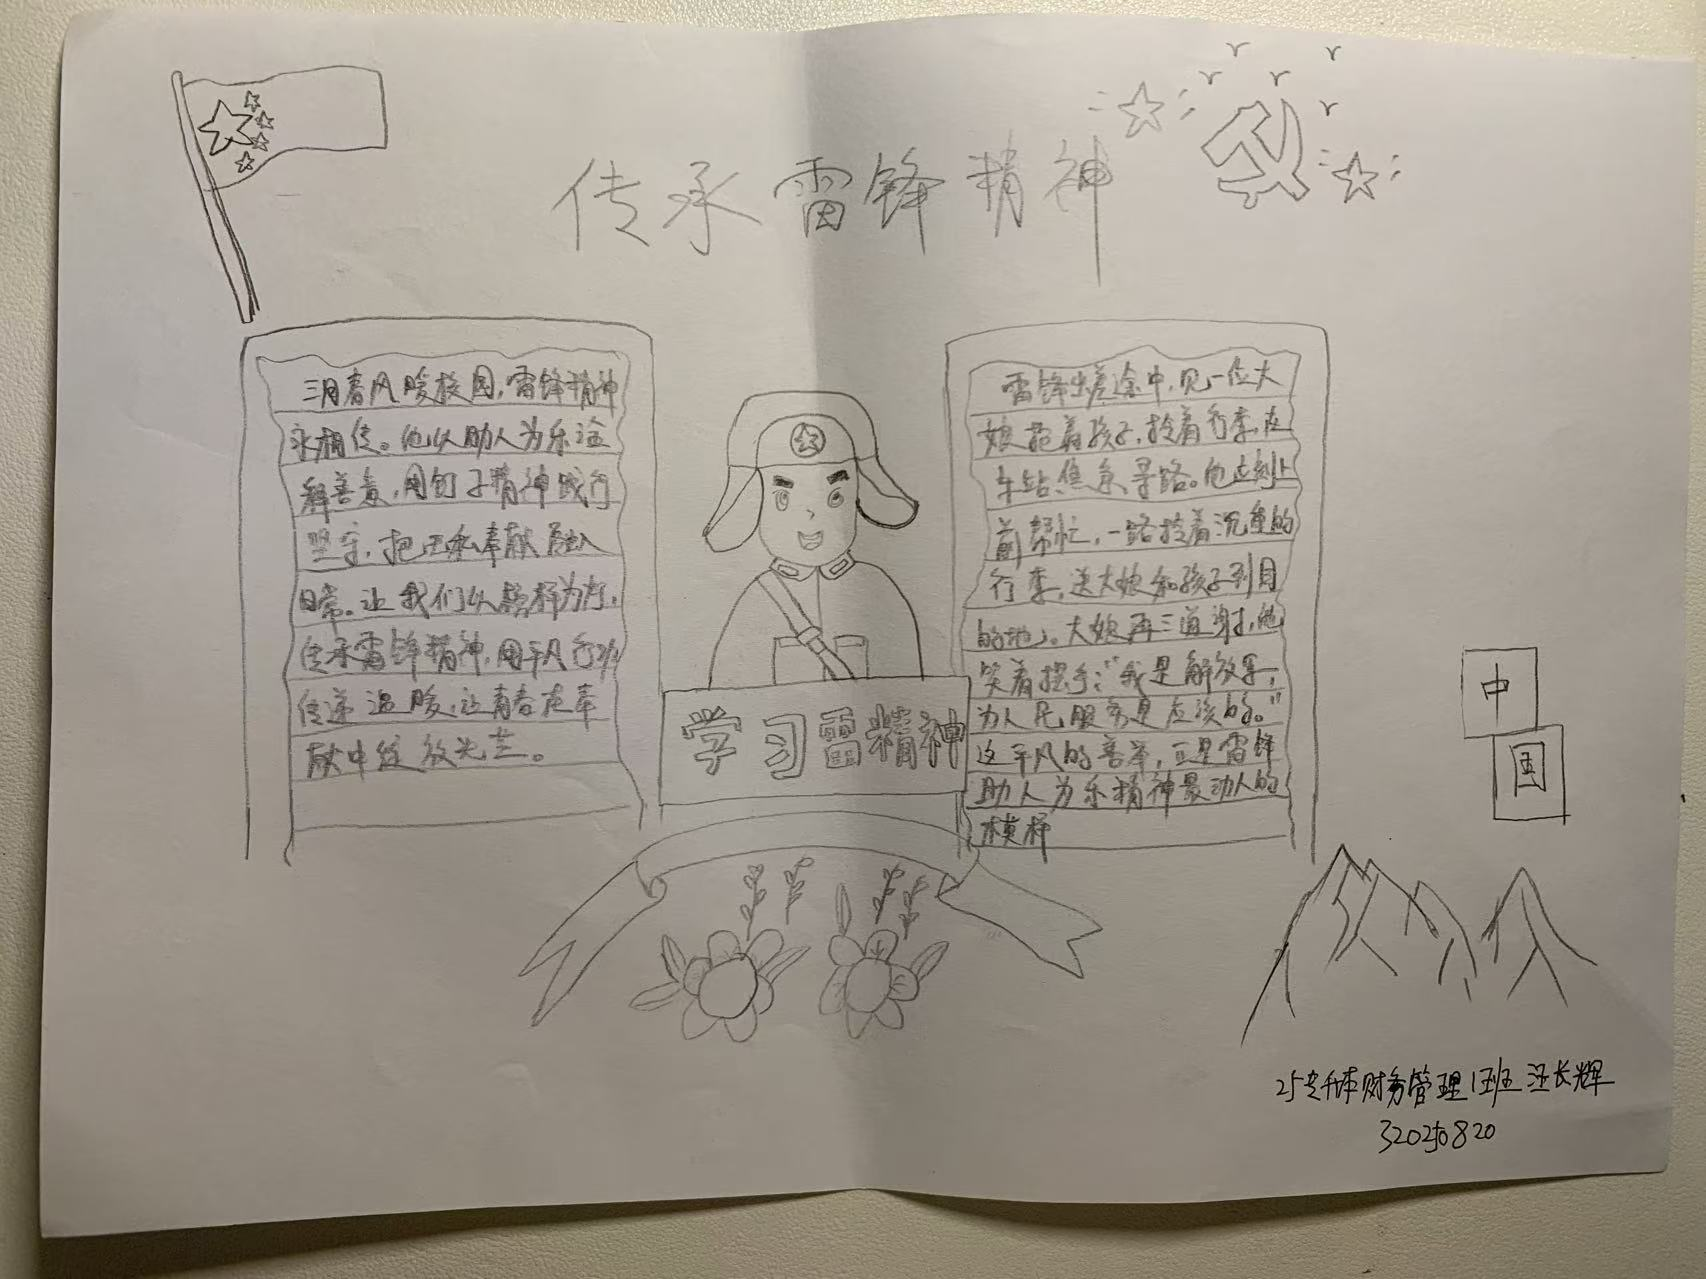 传承雷锋精神
三月春风暖校园,雷锋精神
永相传。他以助人为乐诠
释善意,用钉子精神践行
坚守,把无私奉献融入
日常。让我们以榜样为灯,
传承雷锋精神,用平凡行动
传递温暖,让青春在奉
献中绽放光芒。
学习雷精神
雷锋出差途中,见一位大
娘抱着孩子,拎着行李,在
车站焦急寻路。他立刻上
前帮忙,一路拎着沉重的
行李,送大娘和孩子到目
的地。大娘再三道谢,他
笑着摆手:“我是解放军,
为人民服务是应该的。”
这平凡的善举,正是雷锋
助人为乐精神最动人的
模样
中
国
25专升本财务管理1班 汪长辉
320250820